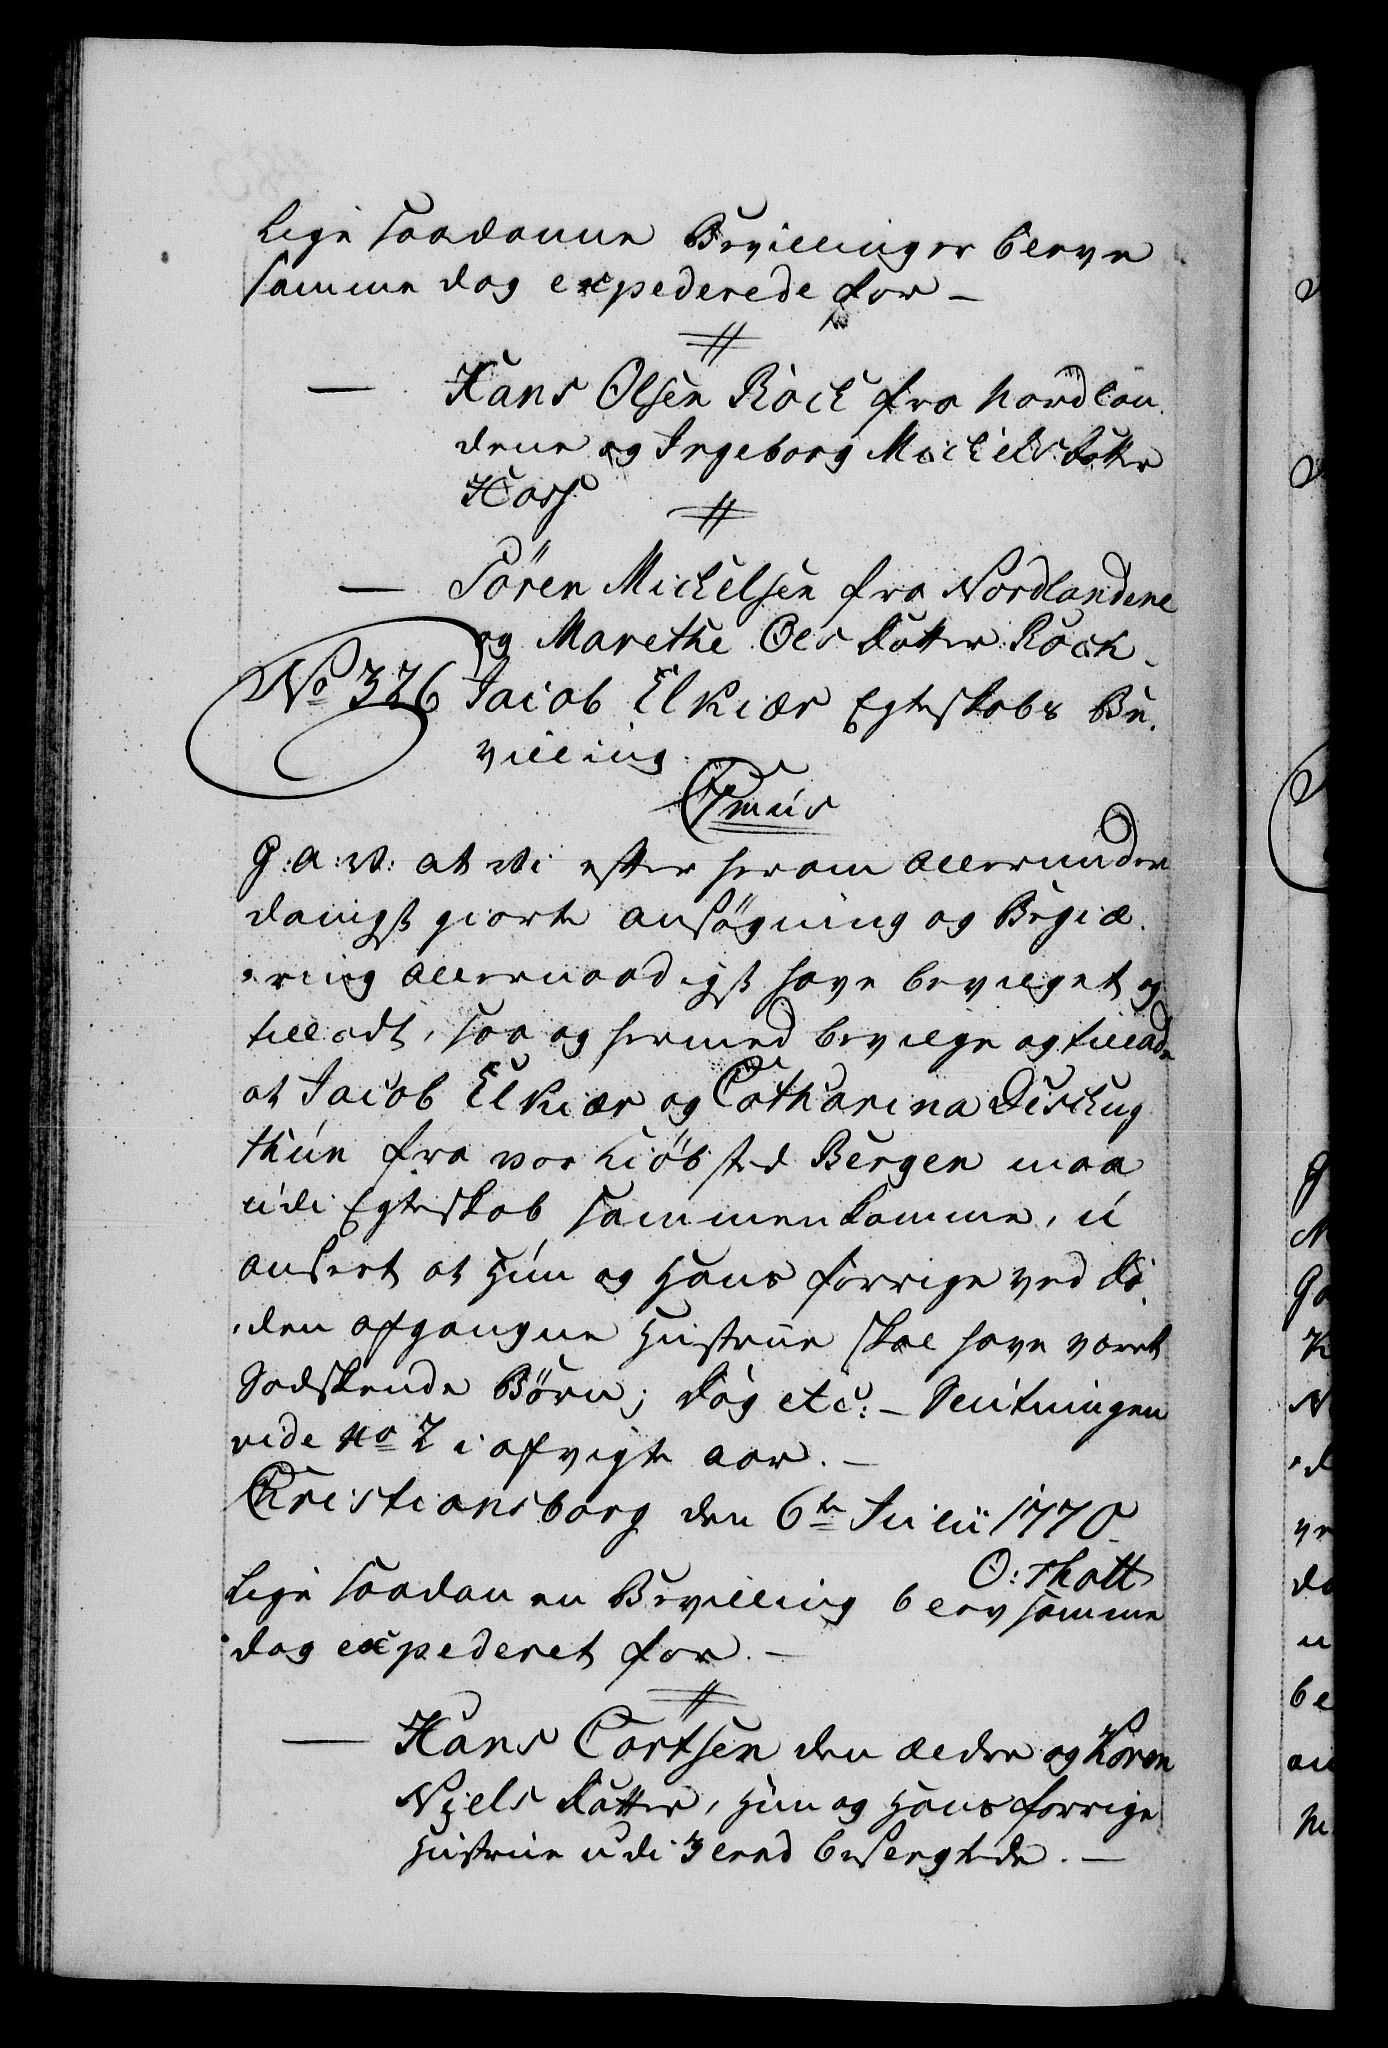 Lige saadanne Bevillinger bleve
samme dag expederede for —
Hans Olsen Röck fra Nordlan
dene og Ingeborg Mickels dotter
Hass
Sören Mickelsen fra Nordlandene
og Marethe Ols dotter Röck.
No 326 Jacob Elkiær Egteskabs Be.
villing.
Csmus
G: a: V: at Vi efter herom allerunder
danigst giorte ansøgning og Begiæ.
ring allernaadigst have bevilget og
tilladt, saa og hermed bevilge og tillade
at Jacob Elkiær og Catharina
thun fra vor Kiöbsted Bergen maa
udi Egteskab sammenkomme, u
anseet at Hun og Hans forrige ved dö.
den afgangne Hustrue skal have været
Sødskende Børn; dog etc: — Slutningen
vide No 2 i afvigte aar. —
Christiansborg den 6te Julii 1770
O: Thott
Lige saadan en Bevilling blev samme
dag expederet for. —
Hans Cortsen den ældre og Karen
Niels dotter, Hun og Hans forrige
Hustrue udi 3 leed beslegtede. —